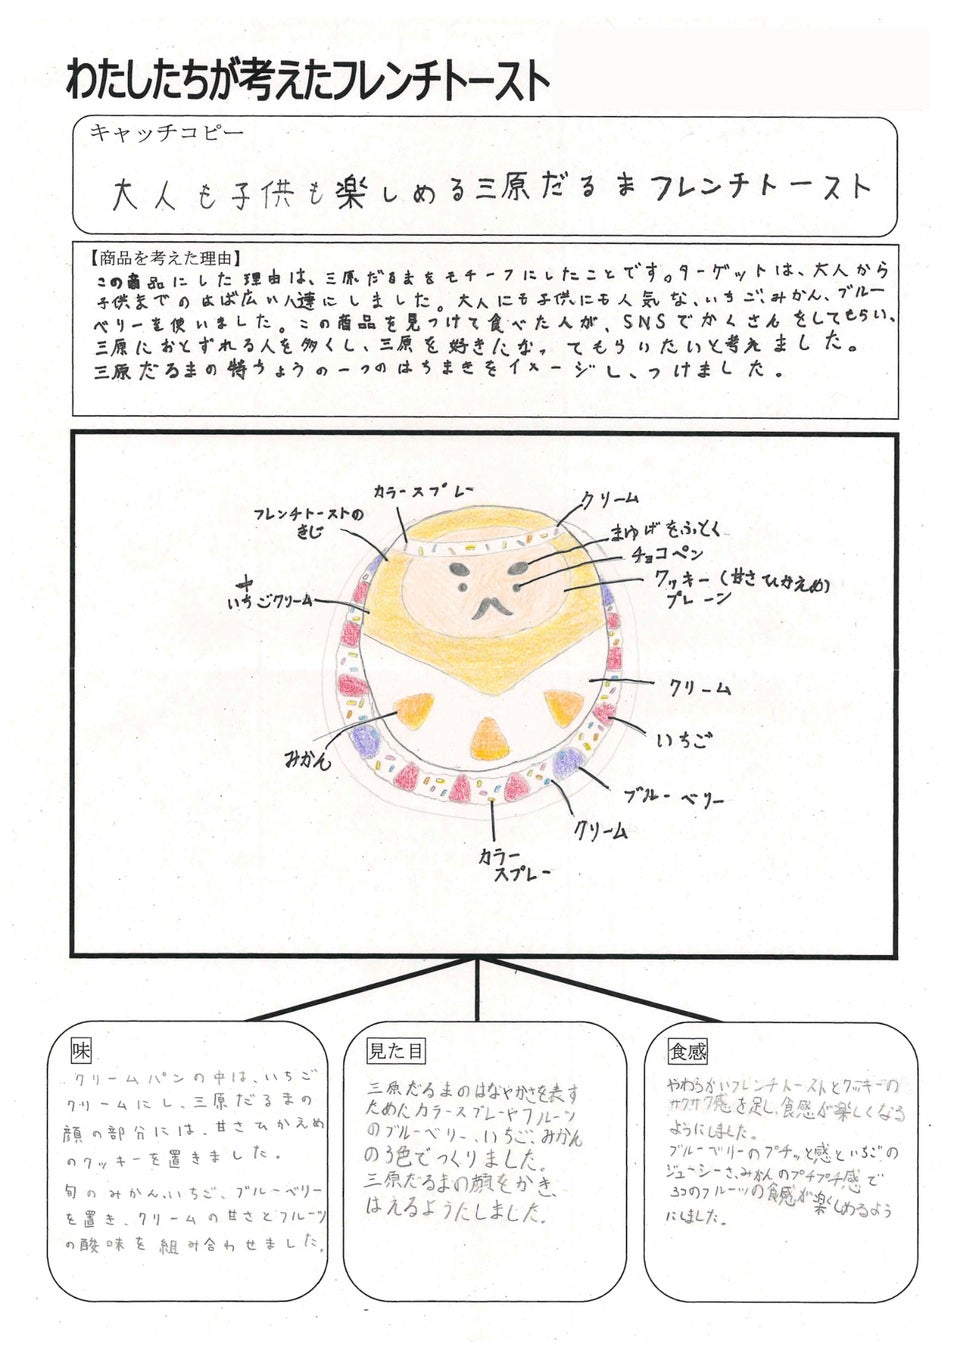 わたしたちが考えたフレンチトースト
キャッチコピー
大人も子供も楽しめる三原だるまフレンチトースト
【商品を考えた理由】
この商品にした理由は、三原だるまをモチーフにしたことです。ターゲットは、大人から
子供までのはば広い人達にしました。大人にも子供にも人気な、いちご、みかん、ブルー
ベリーを使いました。この商品を見つけて食べた人が、SNSでかくさんをしてもらい、
三原におとずれる人を多くし、三原を好きになってもらいたいと考えました。
三原だるまの特ちょうの一つのはちまきをイメージし、つけました。
カラースプレー
クリーム
フレンチトーストの
きじ
まゆげをふとく
チョコペン
クッキー(甘さひかえめ)
プレーン
中
いちごクリーム
クリーム
いちご
みかん
ブルーベリー
クリーム
カラー
スプレー
味
クリームパンの中は、いちご
クリームにし、三原だるまの
顔の部分には、甘さひかえめ
のクッキーを置きました。
旬のみかん、いちご、ブルーベリー
を置き、クリームの甘さとフルーツ
の酸味を組み合わせました。
見た目
三原だるまのはなやかさを表す
ためたカラースプレーやフルーツ
のブルーベリー、いちご、みかん
の3色でつくりました。
三原だるまの顔をかき、
はえるようたしました。
食感
やわらかいフレンチトーストとクッキーの
サクサク感を足し、食感が楽しくなる
ようにしました。
ブルーベリーのプチッと感といちごの
ジューシーさ、みかんのプチプチ感で
3つのフルーツの食感が楽しめるよう
にしました。